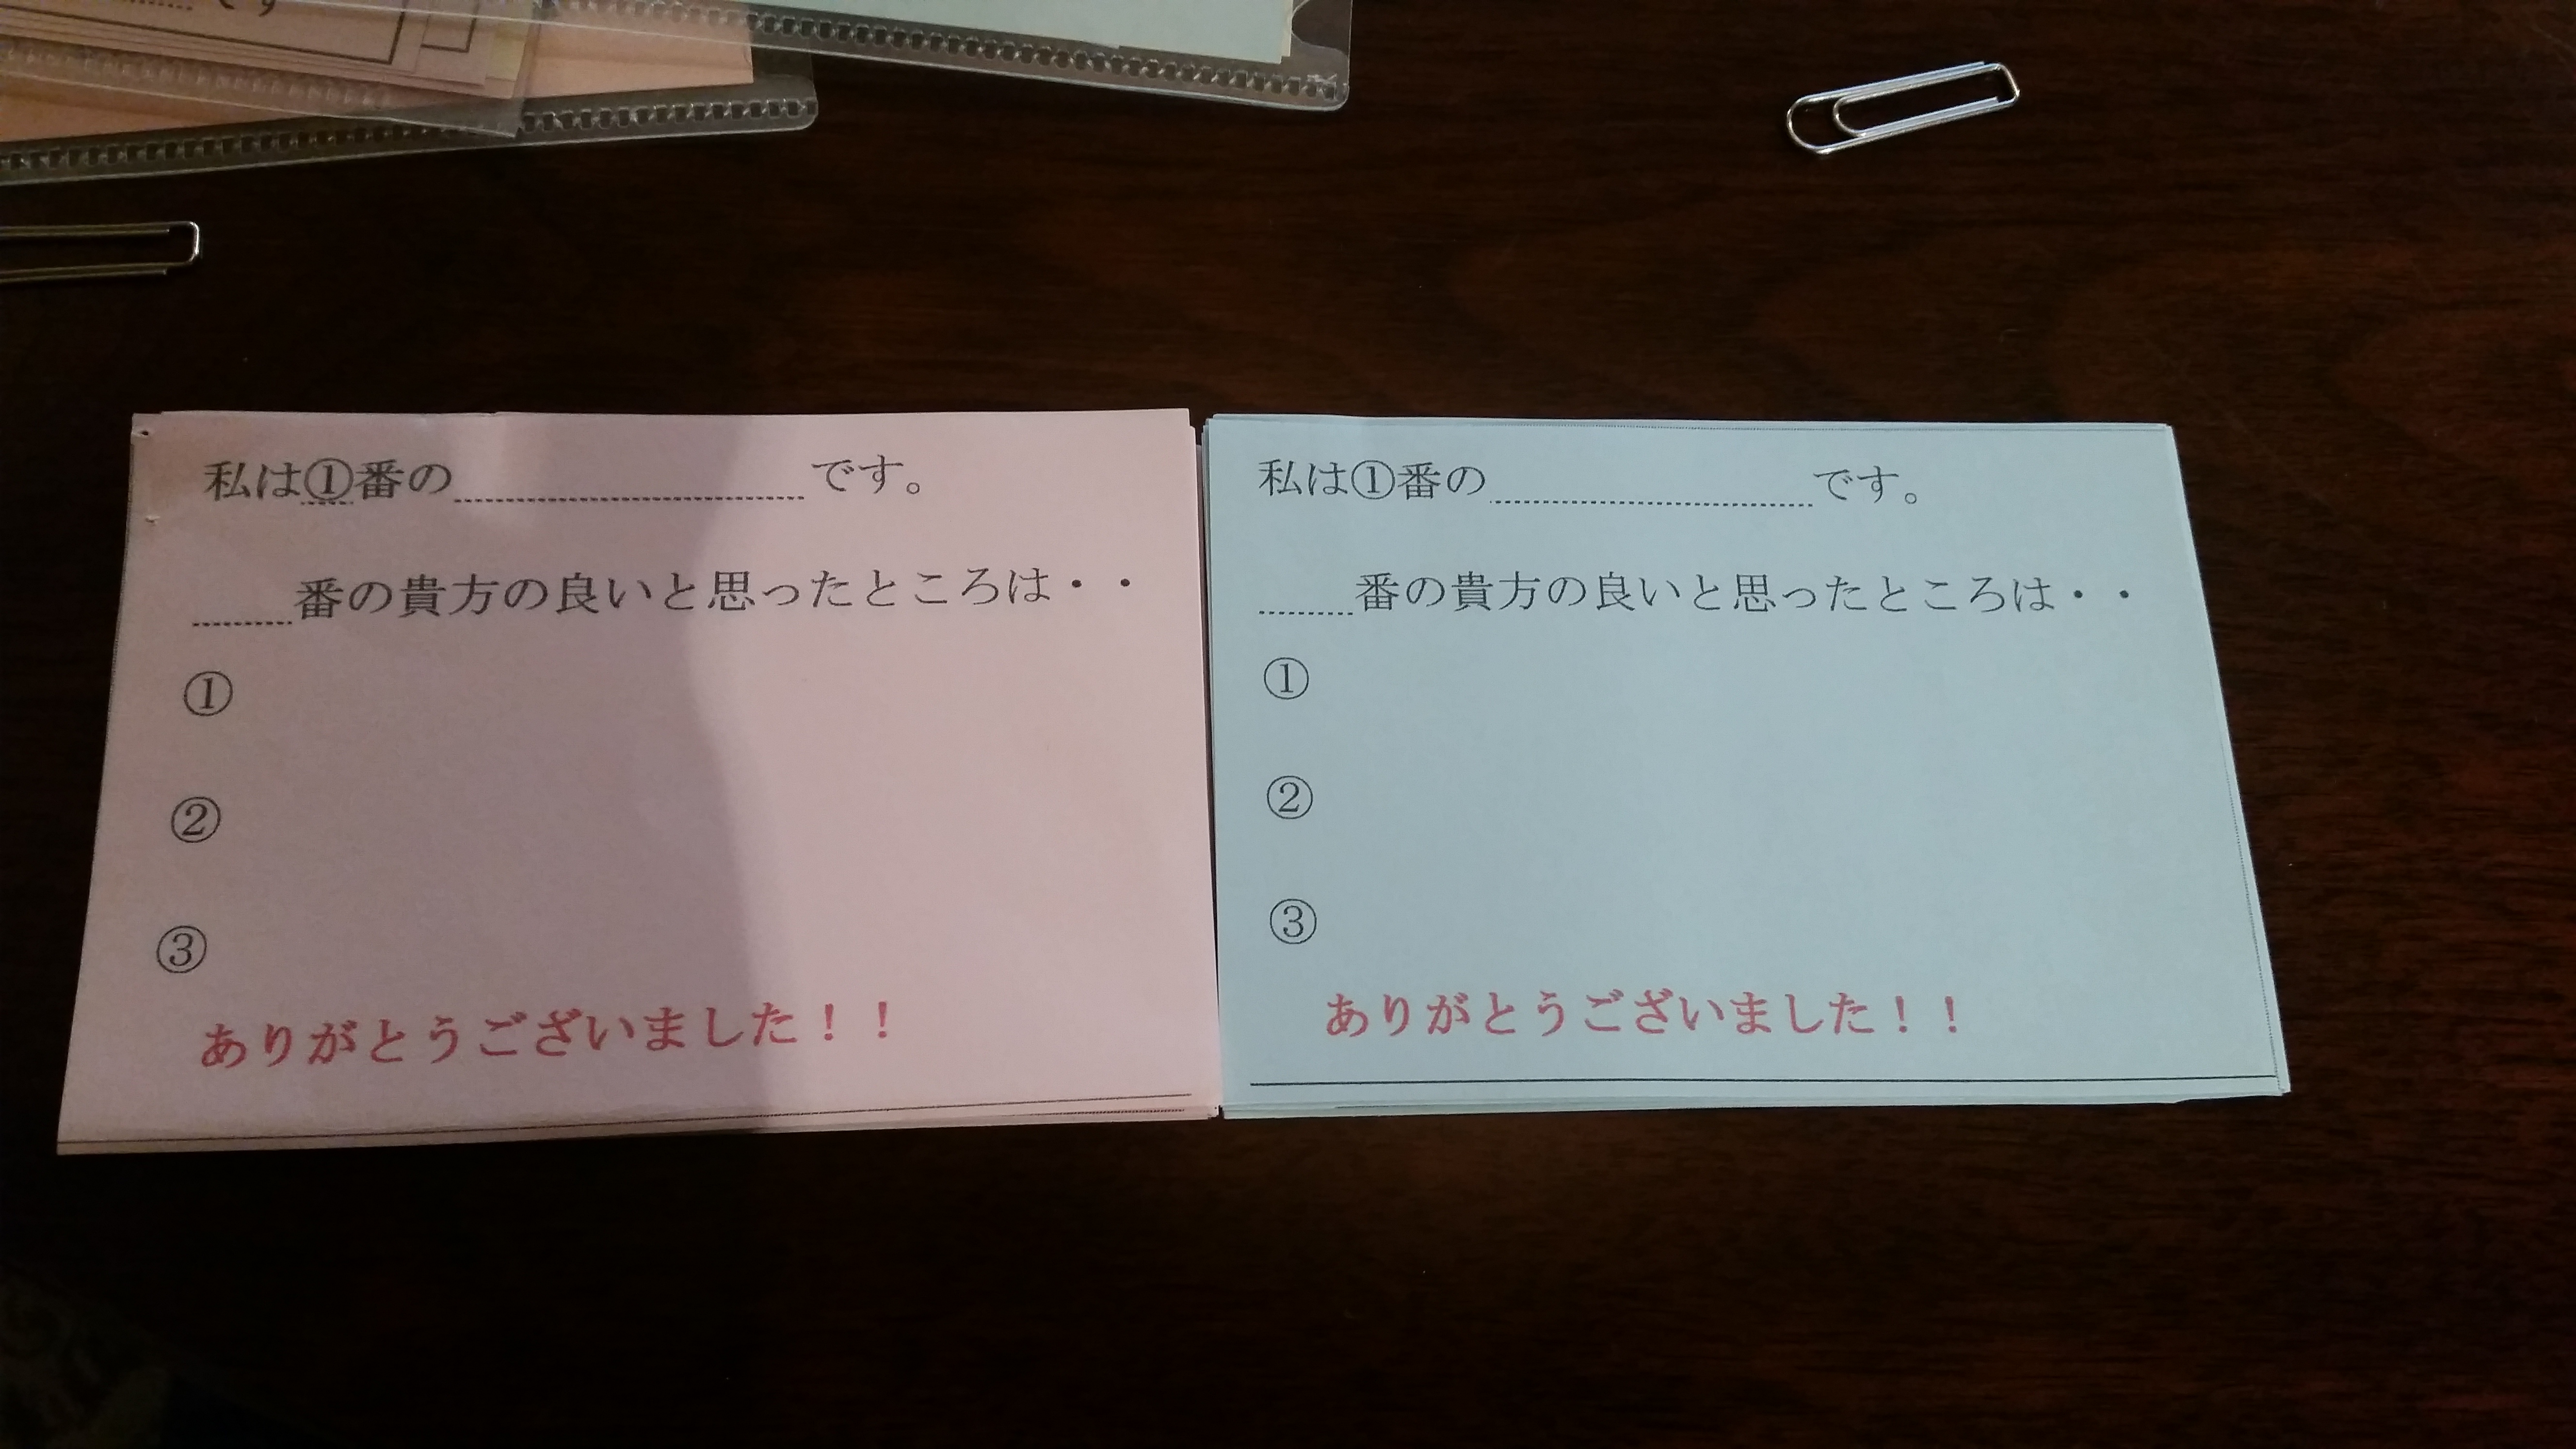 です
私は①番の です。
番の貴方の良いと思ったところは・・
①
②
③
ありがとうございました！！
私は①番の です。
番の貴方の良いと思ったところは・・
①
②
③
ありがとうございました！！